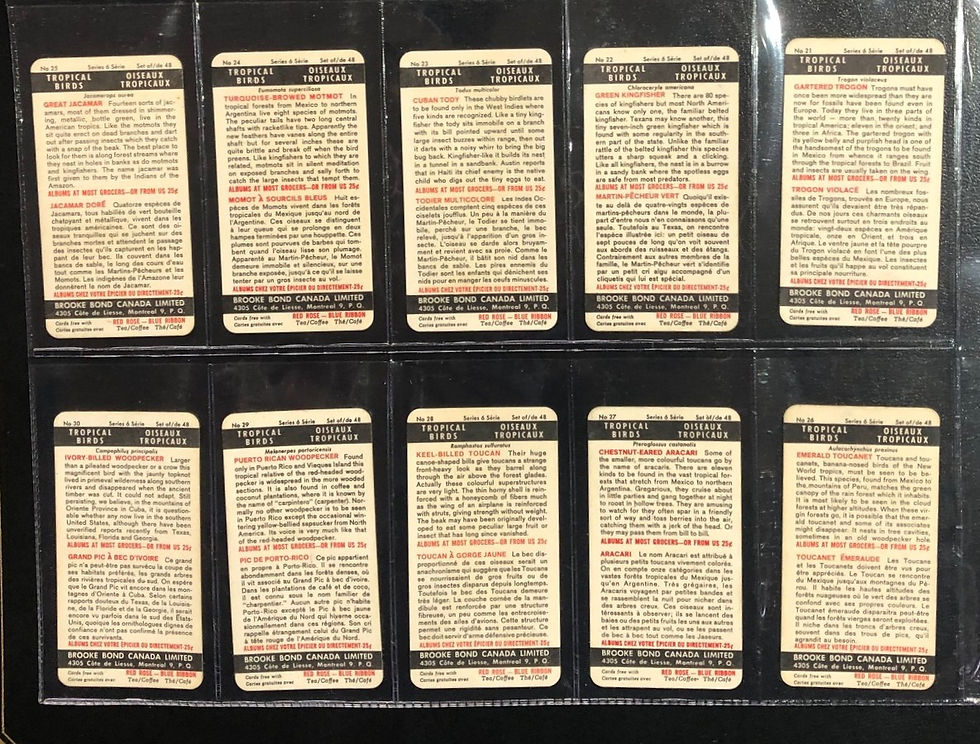 No 25 Series 6 Série Set of/de 48
TROPICAL OISEAUX
BIRDS TROPICAUX
Jacamerops aurea
GREAT JACAMAR Fourteen sorts of jac-
amars, most of them dressed in shimmer-
ing, metallic, bottle green, live in the
American tropics. Like the motmots they
sit quite erect on dead branches and dart
out after passing insects which they catch
with a snap of the beak. The best place to
look for them is along forest streams where
they nest in holes in banks as do motmots
and kingfishers. The name jacamar was
first given to them by the Indians of the
Amazon.
ALBUMS AT MOST GROCERS—OR FROM US 25¢
JACAMAR DORÉ Quatorze espèces de
Jacamars, tous habillés de vert bouteille
chatoyant et métallique, vivent dans les
tropiques américaines. Ce sont des oi-
seaux tranquilles qui se juchent sur des
branches mortes et attendent le passage
des insectes qu'ils capturent en les hap-
pant de leur bec. Ils couvent dans les
bancs de sable, le long des cours d'eau
tout comme les Martins-Pêcheurs et les
Motmots. Les indigènes de l'Amazone leur
donnèrent le nom de Jacamar.
ALBUMS CHEZ VOTRE ÉPICIER OU DIRECTEMENT-25¢
BROOKE BOND CANADA LIMITED
4305 Côte de Liesse, Montreal 9, P. Q.
Cards free with RED ROSE — BLUE RIBBON
Cartes gratuites avec Tea/Coffee Thé/Café
No 24 Series 6 Série Set of/de 48
TROPICAL OISEAUX
BIRDS TROPICAUX
Eumomota superciliosa
TURQUOISE-BROWED MOTMOT In
tropical forests from Mexico to northern
Argentina live eight species of motmots.
The peculiar tails have two long central
shafts with racketlike tips. Apparently the
new feathers have vanes along the entire
shaft but for several inches these are
quite brittle and break off when the bird
preens. Like kingfishers to which they are
related, motmots sit in silent meditation
on exposed branches and selly forth to
catch the large insects that tempt them.
ALBUMS AT MOST GROCERS—OR FROM US 25¢
MOMOT À SOURCILS BLEUS Huit es-
pèces de Momots vivent dans les forêts
tropicales du Mexique jusqu'au nord de
l'Argentine. Ces oiseaux se distinguent
à leur queue qui se prolonge en deux
hampes terminées par une houppette. Ces
plumes sont pourvues de barbes qui tom-
bent quand l'oiseau lisse son plumage.
Apparenté au Martin-Pêcheur, le Momot
demeure immobile et silencieux, sur une
branche exposée, jusqu'à ce qu'il se laisse
tenter par un gros insecte au vol.
ALBUMS CHEZ VOTRE ÉPICIER OU DIRECTEMENT-25¢
BROOKE BOND CANADA LIMITED
4305 Côte de Liesse, Montreal 9, P. Q.
Cards free with RED ROSE — BLUE RIBBON
Cartes gratuites avec Tea/Coffee Thé/Café
No 23 Series 6 Série Set of/de 48
TROPICAL OISEAUX
BIRDS TROPICAUX
Todus multicolor
CUBAN TODY These chubby birdlets are
to be found only in the West Indies where
five kinds are recognized. Like a tiny king-
fisher the tody sits immobile on a branch
with its bill pointed upward until some
large insect buzzes within range, then out
it darts with a noisy whirr to bring the big
bug back. Kingfisher-like it builds its nest
in a tunnel in a sandbank. Austin reports
that in Haiti its chief enemy is the native
child who digs out the tiny eggs to eat.
ALBUMS AT MOST GROCERS—OR FROM US 25¢
TODIER MULTICOLORE Les Indes Oc-
cidentales comptent cinq espèces de ces
oiselets joufflus. Un peu à la manière du
Martin-Pêcheur, le Todier se tient immo-
bile, perché sur une branche, le bec
relevé, jusqu'à l'apparition d'un gros in-
secte. L'oiseau se darde alors bruyam-
ment et revient avec sa proie. Comme le
Martin-Pêcheur, il bâtit son nid dans les
bancs de sable. Les pires ennemis du
Todier sont les enfants qui dénichent ses
nids pour en manger les oeufs minuscules.
ALBUMS CHEZ VOTRE ÉPICIER OU DIRECTEMENT-25¢
BROOKE BOND CANADA LIMITED
4305 Côte de Liesse, Montreal 9, P. Q.
Cards free with RED ROSE — BLUE RIBBON
Cartes gratuites avec Tea/Coffee Thé/Café
No 22 Series 6 Série Set of/de 48
TROPICAL OISEAUX
BIRDS TROPICAUX
Chloroceryle americana
GREEN KINGFISHER There are 80 spe-
cies of kingfishers but most North Ameri-
cans know only one, the familiar belted
kingfisher. Texans may know another, this
tiny seven-inch green kingfisher which is
found with some regularity in the south-
ern part of the state. Unlike the familiar
rattle of the belted kingfisher this species
utters a sharp squeak and a clicking.
Like all kingfishers, the nest is in a burrow
in a sandy bank where the spotless eggs
are safe from most predators.
ALBUMS AT MOST GROCERS—OR FROM US 25¢
MARTIN-PÊCHEUR VERT Quoiqu'il exis-
te au delà de quatre-vingts espèces de
martins-pêcheurs dans le monde, la plu-
part d'entre nous n'en connaissons qu'une
seule. Toutefois au Texas, on rencontre
l'espèce illustrée ici: un petit oiseau de
sept pouces de long qu'on voit souvent
aux abords de ruisseaux et des étangs.
Contrairement aux autres membres de la
famille, le Martin-Pêcheur vert s'identifie
par un petit cri aigu accompagné d'un
cliquetis qui lui est spécial.
ALBUMS CHEZ VOTRE ÉPICIER OU DIRECTEMENT-25¢
BROOKE BOND CANADA LIMITED
4305 Côte de Liesse, Montreal 9, P. Q.
Cards free with RED ROSE — BLUE RIBBON
Cartes gratuites avec Tea/Coffee Thé/Café
No 21 Series 6 Série Set of/de 48
TROPICAL OISEAUX
BIRDS TROPICAUX
Trogon violaceus
GARTERED TROGON Trogons must have
once been more widespread than they are
now for fossils have been found even in
Europe. Today they live in three parts of
the world — more than twenty kinds in
tropical America; eleven in the orient; and
three in Africa. The gartered trogon with
its yellow belly and purplish head is one of
the handsomest of the trogons to be found
in Mexico from whence it ranges south
through the tropical forests to Brazil. Fruit
and insects are usually taken on the wing.
ALBUMS AT MOST GROCERS—OR FROM US 25¢
TROGON VIOLACÉ Les nombreux fos-
siles de Trogons, trouvés en Europe, nous
assurent qu'ils devaient être très répan-
dus. De nos jours ces charmants oiseaux
se retrouvent surtout en trois endroits au
monde: vingt-deux espèces en Amérique
tropicale, onze en Orient et trois en
Afrique. Le ventre jaune et la tête pourpre
du Trogon violacé en font l'une des plus
belles espèces du Mexique. Les insectes
et les fruits qu'il happe au vol constituent
sa principale nourriture.
ALBUMS CHEZ VOTRE ÉPICIER OU DIRECTEMENT-25¢
BROOKE BOND CANADA LIMITED
4305 Côte de Liesse, Montreal 9, P. Q.
Cards free with RED ROSE — BLUE RIBBON
Cartes gratuites avec Tea/Coffee Thé/Café
No 30 Series 6 Série Set of/de 48
TROPICAL OISEAUX
BIRDS TROPICAUX
Campephilus principalis
IVORY-BILLED WOODPECKER Larger
than a pileated woodpecker or a crow this
magnificent bird with the jaunty topknot
lived in primeval wilderness along southern
rivers and disappeared when the ancient
timber was cut. It could not adapt. Still
persisting, we believe, in the mountains of
Oriente Province in Cuba, it is question-
able whether any now live in the southern
United States, although there have been
unverified reports recently from Texas,
Louisiana, Florida and Georgia.
ALBUMS AT MOST GROCERS—OR FROM US 25¢
GRAND PIC À BEC D'IVOIRE Ce grand
pic n'a peut-être pas survécu la coupe de
ses habitats préférés, les grands arbres
des rivières tropicales du sud. On espère
que le Grand Pic vit encore dans les mon-
tagnes d'Oriente à Cuba. Selon certains
rapports douteux du Texas, de la Louisia-
ne, de la Floride et de la Georgie, il serait
encore vu parfois dans le sud des États-
Unis, quoique les ornithologues dignes de
confiance n'ont pas confirmé la présence
de ces survivants.
ALBUMS CHEZ VOTRE ÉPICIER OU DIRECTEMENT-25¢
BROOKE BOND CANADA LIMITED
4305 Côte de Liesse, Montreal 9, P. Q.
Cards free with RED ROSE — BLUE RIBBON
Cartes gratuites avec Tea/Coffee Thé/Café
No 29 Series 6 Série Set of/de 48
TROPICAL OISEAUX
BIRDS TROPICAUX
Melanerpes portoricensis
PUERTO RICAN WOODPECKER Found
only in Puerto Rico and Vieques Island this
tropical relative of the red-headed wood-
pecker is widespread in the more wooded
sections. It is also found in coffee and
coconut plantations, where it is known by
the name of "carpintero" (carpenter). Nor-
mally no other woodpecker is to be seen
in Puerto Rico except the occasional win-
tering yellow-bellied sapsucker from North
America. Its voice is very much like that
of the red-headed woodpecker.
ALBUMS AT MOST GROCERS—OR FROM US 25¢
PIC DE PORTO-RICO Ce pic appartient
en propre à Porto-Rico. Il se rencontre
abondamment dans les forêts denses, où
il vit associé au Grand Pic à bec d'ivoire.
Dans les plantations de café et de coco,
il est connu sous le nom familier de
"charpentier." Aucun autre pic n'habite
Porto-Rico excepté le Pic à bec jaune
de l'Amérique du Nord qui hiverne occa-
sionnellement dans ces régions. Son cri
rappelle étrangement celui du Grand Pic
à tête rouge de l'Amérique du Nord.
ALBUMS CHEZ VOTRE ÉPICIER OU DIRECTEMENT-25¢
BROOKE BOND CANADA LIMITED
4305 Côte de Liesse, Montreal 9, P. Q.
Cards free with RED ROSE — BLUE RIBBON
Cartes gratuites avec Tea/Coffee Thé/Café
No 28 Series 6 Série Set of/de 48
TROPICAL OISEAUX
BIRDS TROPICAUX
Ramphastos sulfuratus
KEEL-BILLED TOUCAN Their huge
canoe-shaped bills give toucans a strange
front-heavy look as they barrel along
through the air above the forest glades.
Actually these colourful superstructures
are very light. The thin horny shell is rein-
forced with a honeycomb of fibers much
as the wing of an airplane is reinforced
with struts, giving strength without weight.
The beak may have been originally devel-
oped to eat some peculiar large fruit or
insect that has long since vanished.
ALBUMS AT MOST GROCERS—OR FROM US 25¢
TOUCAN À GORGE JAUNE Le bec dis-
proportionné de ces oiseaux serait un
anachronisme qui suggère que les Toucans
se nourrissaient de gros fruits ou de
gros insectes disparus depuis longtemps.
Toutefois le bec des Toucans demeure
très léger. La couche cornée de la man-
dibule est renforcée par une structure
fibreuse, un peu comme les entrecroise-
ments des ailes d'avions. Cette structure
permet une rigidité sans pesanteur. Ce
bec doit servir d'arme défensive précieuse.
ALBUMS CHEZ VOTRE ÉPICIER OU DIRECTEMENT-25¢
BROOKE BOND CANADA LIMITED
4305 Côte de Liesse, Montreal 9, P. Q.
Cards free with RED ROSE — BLUE RIBBON
Cartes gratuites avec Tea/Coffee Thé/Café
No 27 Series 6 Série Set of/de 48
TROPICAL OISEAUX
BIRDS TROPICAUX
Pteroglossus castanotis
CHESTNUT-EARED ARACARI Some of
the smaller, more colourful toucans go by
the name of aracaris. There are eleven
kinds to be found in the vast tropical for-
ests that stretch from Mexico to northern
Argentina. Gregarious, they cruise about
in little parties and gang together at night
to roost in hollow trees. They are amusing
to watch for they often spar in a friendly
sort of way and toss berries into the air,
catching them with a jerk of the head. Or
they may pass them from bill to bill.
ALBUMS AT MOST GROCERS—OR FROM US 25¢
ARACARI Le nom Aracari est attribué à
plusieurs petits toucans vivement colorés.
On en compte onze catégories dans les
vastes forêts tropicales du Mexique jus-
qu'en Argentine. Très grégaires, les
Aracaris voyagent par petites bandes et
se rassemblent la nuit pour nicher dans
des arbres creux. Ces oiseaux sont in-
téressants à observer; ils se lancent des
baies ou des petits fruits les uns aux autres
et les attrapent au vol, ou se les passent
de bec à bec tout comme les Jaseurs.
ALBUMS CHEZ VOTRE ÉPICIER OU DIRECTEMENT-25¢
BROOKE BOND CANADA LIMITED
4305 Côte de Liesse, Montreal 9, P. Q.
Cards free with RED ROSE — BLUE RIBBON
Cartes gratuites avec Tea/Coffee Thé/Café
No 26 Series 6 Série Set of/de 48
TROPICAL OISEAUX
BIRDS TROPICAUX
Aulacorhynchus prasinus
EMERALD TOUCANET Toucans and tou-
canets, banana-nosed birds of the New
World tropics, must be seen to be be-
lieved. This species, found from Mexico to
the mountains of Peru, matches the green
canopy of the rain forest which it inhabits.
It is most likely to be seen in the cloud
forests at higher altitudes. When these vir-
gin forests go, it is possible that the emer-
ald toucanet and some of its associates
might disappear. It nests in tree cavities,
sometimes in an old woodpecker hole.
ALBUMS AT MOST GROCERS—OR FROM US 25¢
TOUCANET ÉMERAUDE Les Toucans
et les Toucanets doivent être vus pour
être appréciés. Le Toucan se rencontre
du Mexique jusqu'aux montagnes du Pé-
rou. Il habite les hautes altitudes des
forêts nuageuses où le vert des arbres se
confond avec ses propres couleurs. Le
Toucanet émeraude disparaîtra peut-être
quand les forêts vierges seront exploitées.
Il niche dans les troncs d'arbres creux,
souvent dans des trous de pics, qu'il
agrandit au besoin.
ALBUMS CHEZ VOTRE ÉPICIER OU DIRECTEMENT-25¢
BROOKE BOND CANADA LIMITED
4305 Côte de Liesse, Montreal 9, P. Q.
Cards free with RED ROSE — BLUE RIBBON
Cartes gratuites avec Tea/Coffee Thé/Café